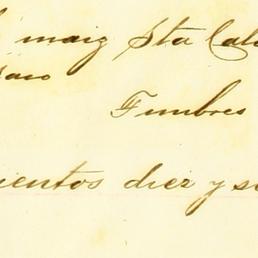 maiz Sta Cal
Timbres
ientos diez y s